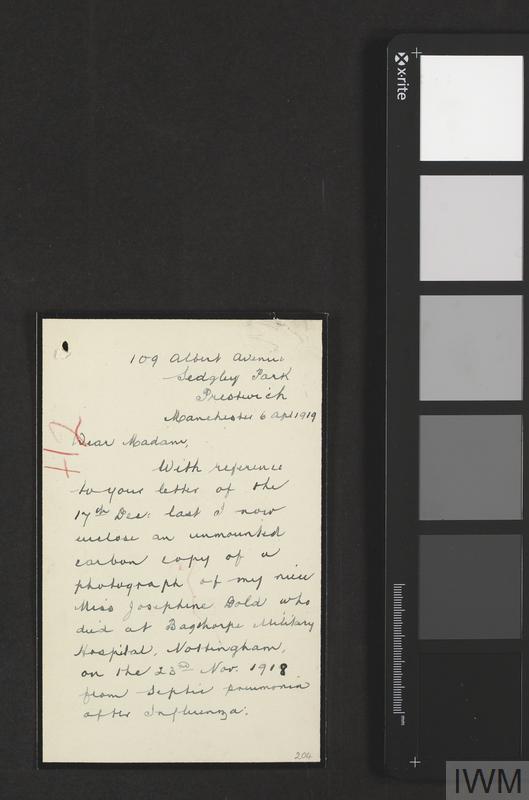 109 Albert Avenue
Sedgley Park
Prestwich
Manchester 6 Apl 1919
Dear Madam,
With reference
to your letter of the
17th Dec: last I now
enclose an unmounted
carbon copy of a
photograph of my niece
Miss Josephine Dold who
died at Bagthorpe Military
Hospital, Nottingham,
on the 23rd Nov. 1918
from Septic pneumonia
after Influenza.
204
x-rite
mm
IWM